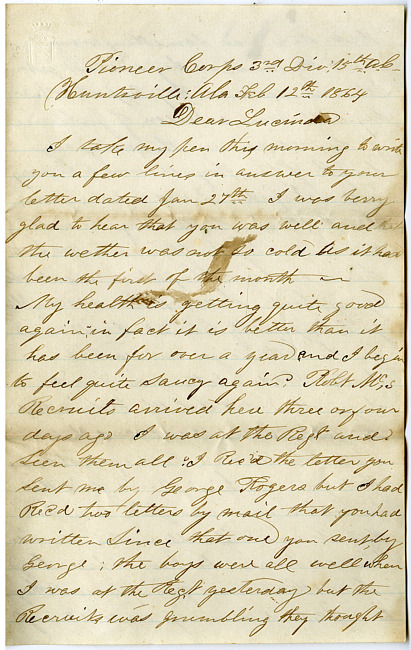 Pioneer Corps 3rd Div. 15th A.C.
Huntsville: Ala Feb 12th 1864
Dear Lucinda
I take my pen this morning to write
you a few lines in answer to your
letter dated Jan 27th I was berry
glad to hear that you was well and that
the wether was not so cold as it had
been the first of the month
My health is getting quite good
again in fact it is better than it
has been for over a year and I begin
to feel quite saucy again. Robt Mc,s
Recruits arrived here three or four
days ago I was at the Regt and
seen them all: I Rec'd the letter you
sent me by George Rogers but I had
Rec'd two letters by mail that you had
written since that one you sent by
George; the boys were all well when
I was at the Regt yesterday but the
Recruits was grumbling they thought